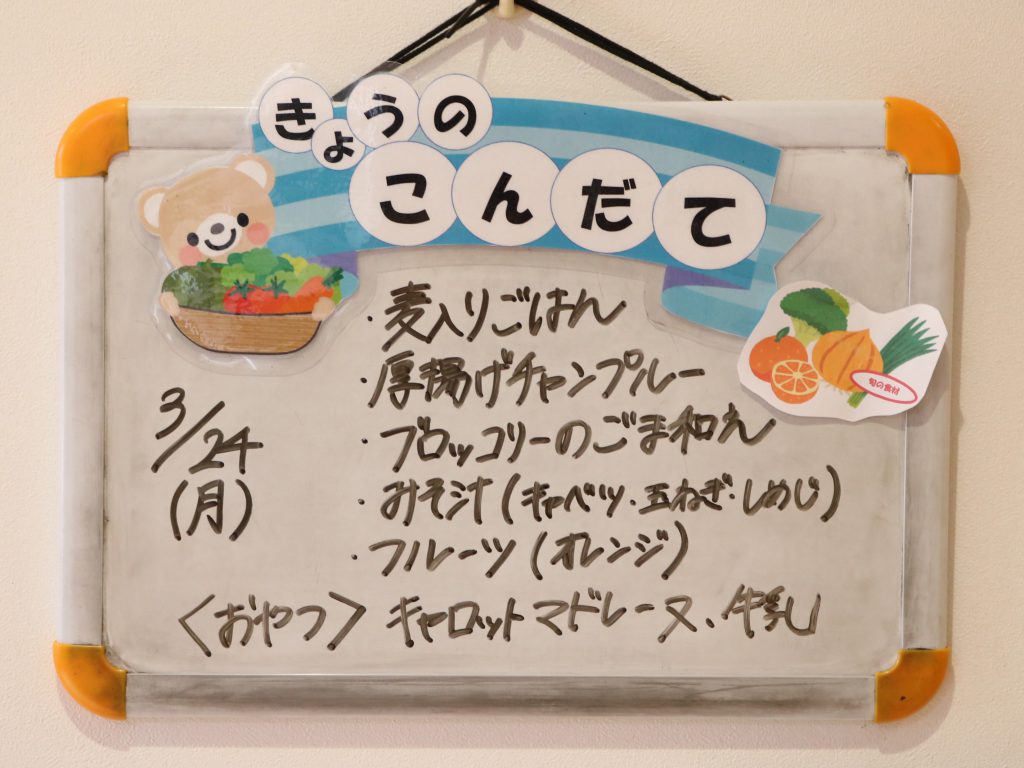 きょうの
こんだて
旬の食材
3/24
(月)
・麦入りごはん
・厚揚げチャンプルー
・ブロッコリーのごま和え
・みそ汁(キャベツ・玉ねぎ・しめじ)
・フルーツ(オレンジ)
〈おやつ〉キャロットマドレーヌ、牛乳